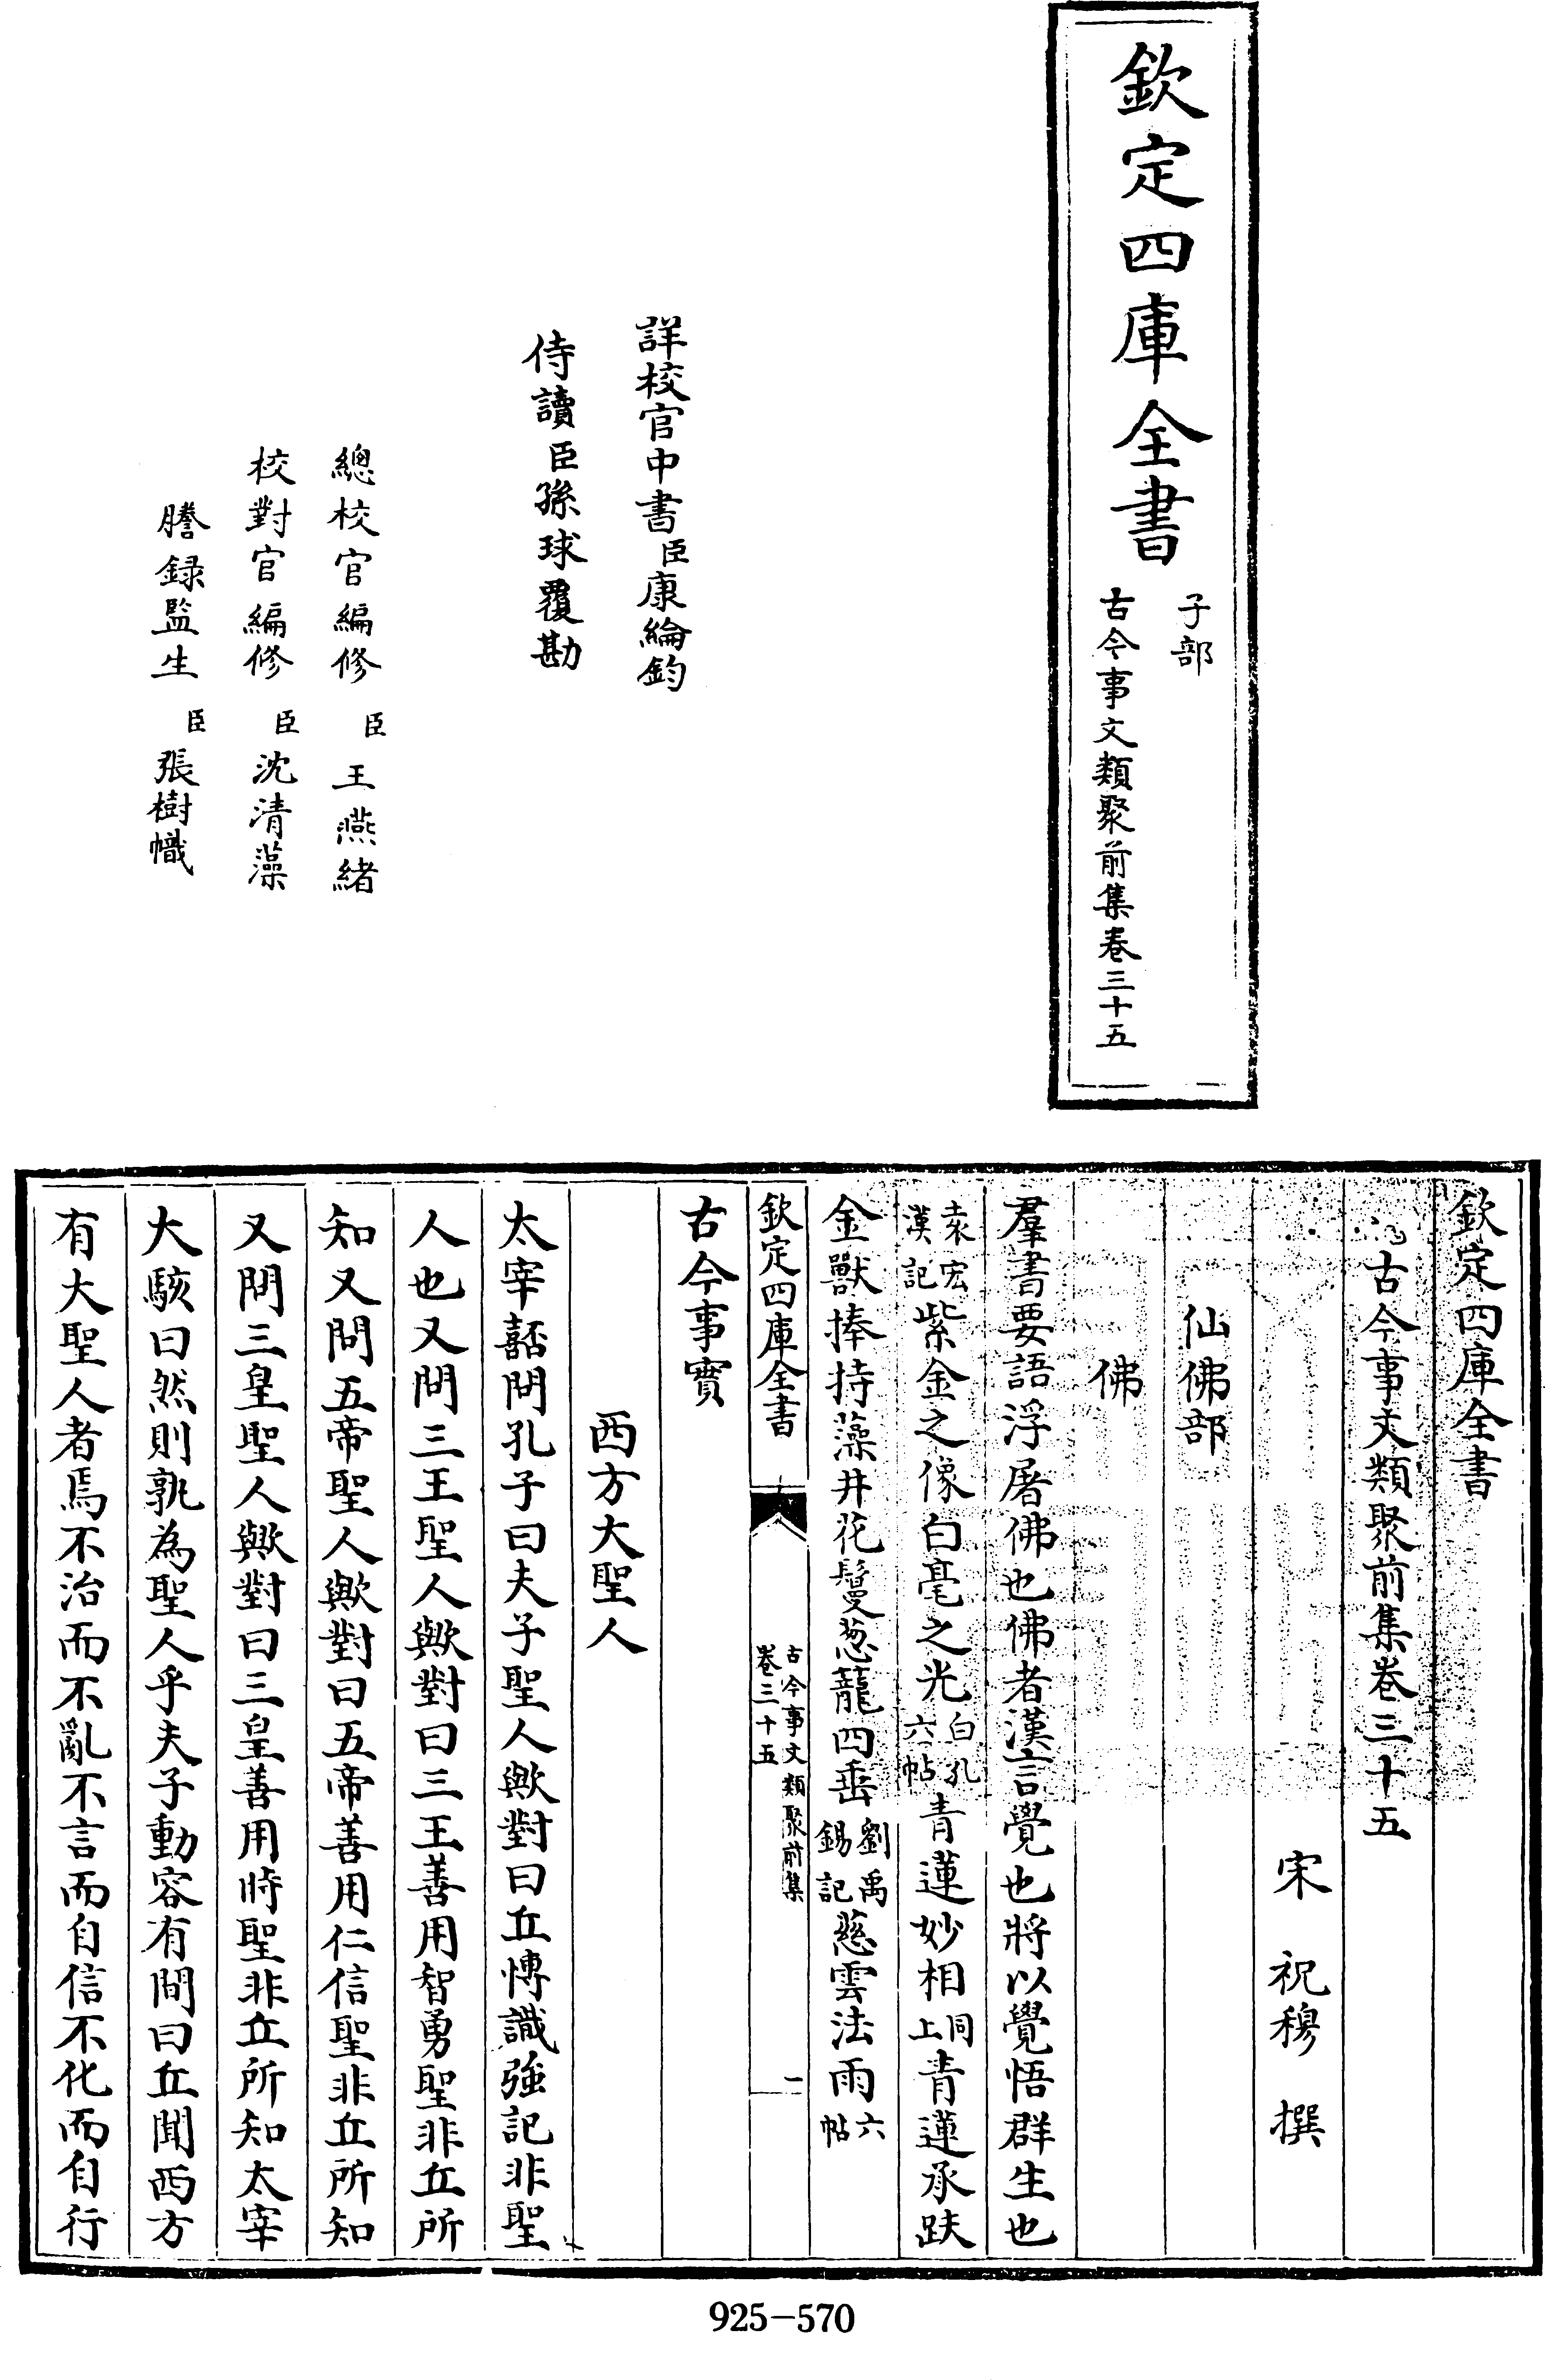 欽定四庫全書
子部
古今事文類聚前集卷三十五
詳校官中書臣康綸鈞
侍讀臣孫球覆勘
總校官編修臣王燕緒
校對官編修臣沈清藻
謄録監生臣張樹幟
欽定四庫全書
古今事文類聚前集卷三十五
宋 祝穆 撰
仙佛部
佛
羣書要語浮屠佛也佛者漢言覺也將以覺悟群生也
袁宏漢記紫金之像白毫之光白孔六帖青蓮妙相同上青蓮承趺
金獸捧持藻井花鬘葱蘢四垂劉禹錫記慈雲法雨六帖
欽定四庫全書
古今事文類聚前集
卷三十五
一
古今事實
西方大聖人
太宰嚭問孔子曰夫子聖人歟對曰丘博識強記非聖
人也又問三王聖人歟對曰三王善用智勇聖非丘所
知又問五帝聖人歟對曰五帝善用仁信聖非丘所知
又問三皇聖人歟對曰三皇善用時聖非丘所知太宰
大駭曰然則孰為聖人乎夫子動容有間曰丘聞西方
有大聖人者焉不治而不亂不言而自信不化而自行
925-570